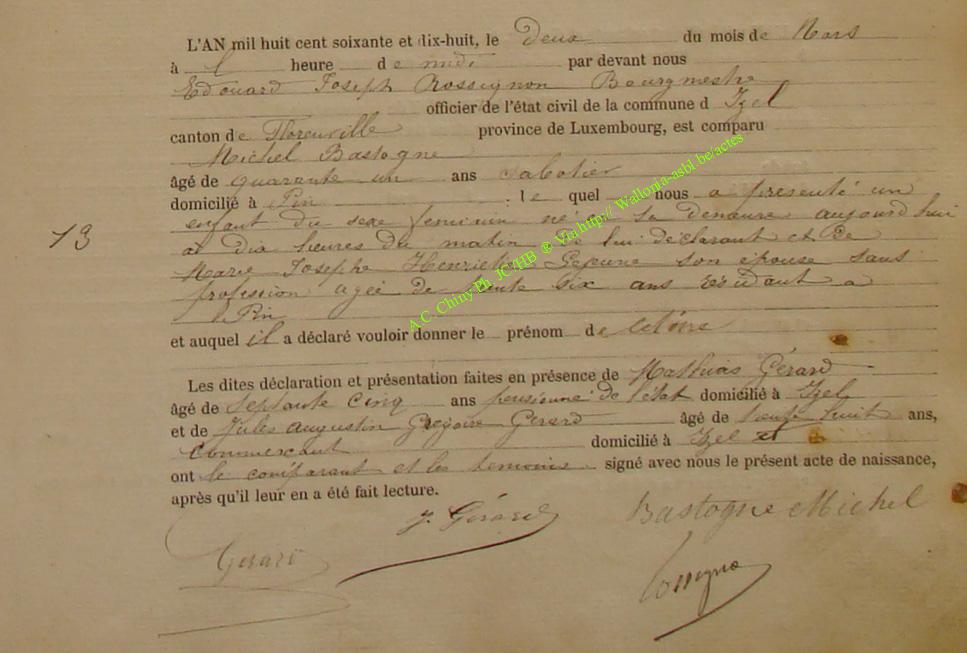 L'AN mil huit cent soixante et dix-huit, le deux du mois de Mars
à l heure de midi par devant nous
Edouard Joseph Rossignon Bourgmestre
officier de l'état civil de la commune d Izel
canton de Florenville province de Luxembourg, est comparu
Michel Bastogne
âgé de quarante un ans Sabotier
domicilié à Pin ; le quel nous a présenté un
enfant du sexe feminin né a sa demeure aujourd'hui
a dix heures du matin de lui déclarant et de
Marie Josephe Henriette Lejeune son épouse sans
profession agée de trente six ans résidant a
Pin
13
et auquel il a déclaré vouloir donner le prénom de
Les dites déclaration et présentation faites en présence de Mathias Gérard
âgé de Septante Cinq ans pensionné de l'état domicilié à Izel
et de Jules Augustin Grégoire Gerard âgé de trente huit ans,
Commercant domicilié à Izel et
ont le comparant et les temoins signé avec nous le présent acte de naissance,
après qu'il leur en a été fait lecture.
J. Gérard Bastogne Michel
Gerard
Rossignon
A.C. Chiny Ph. JC/HB © Via http:// Wallonia-asbl.be/actes